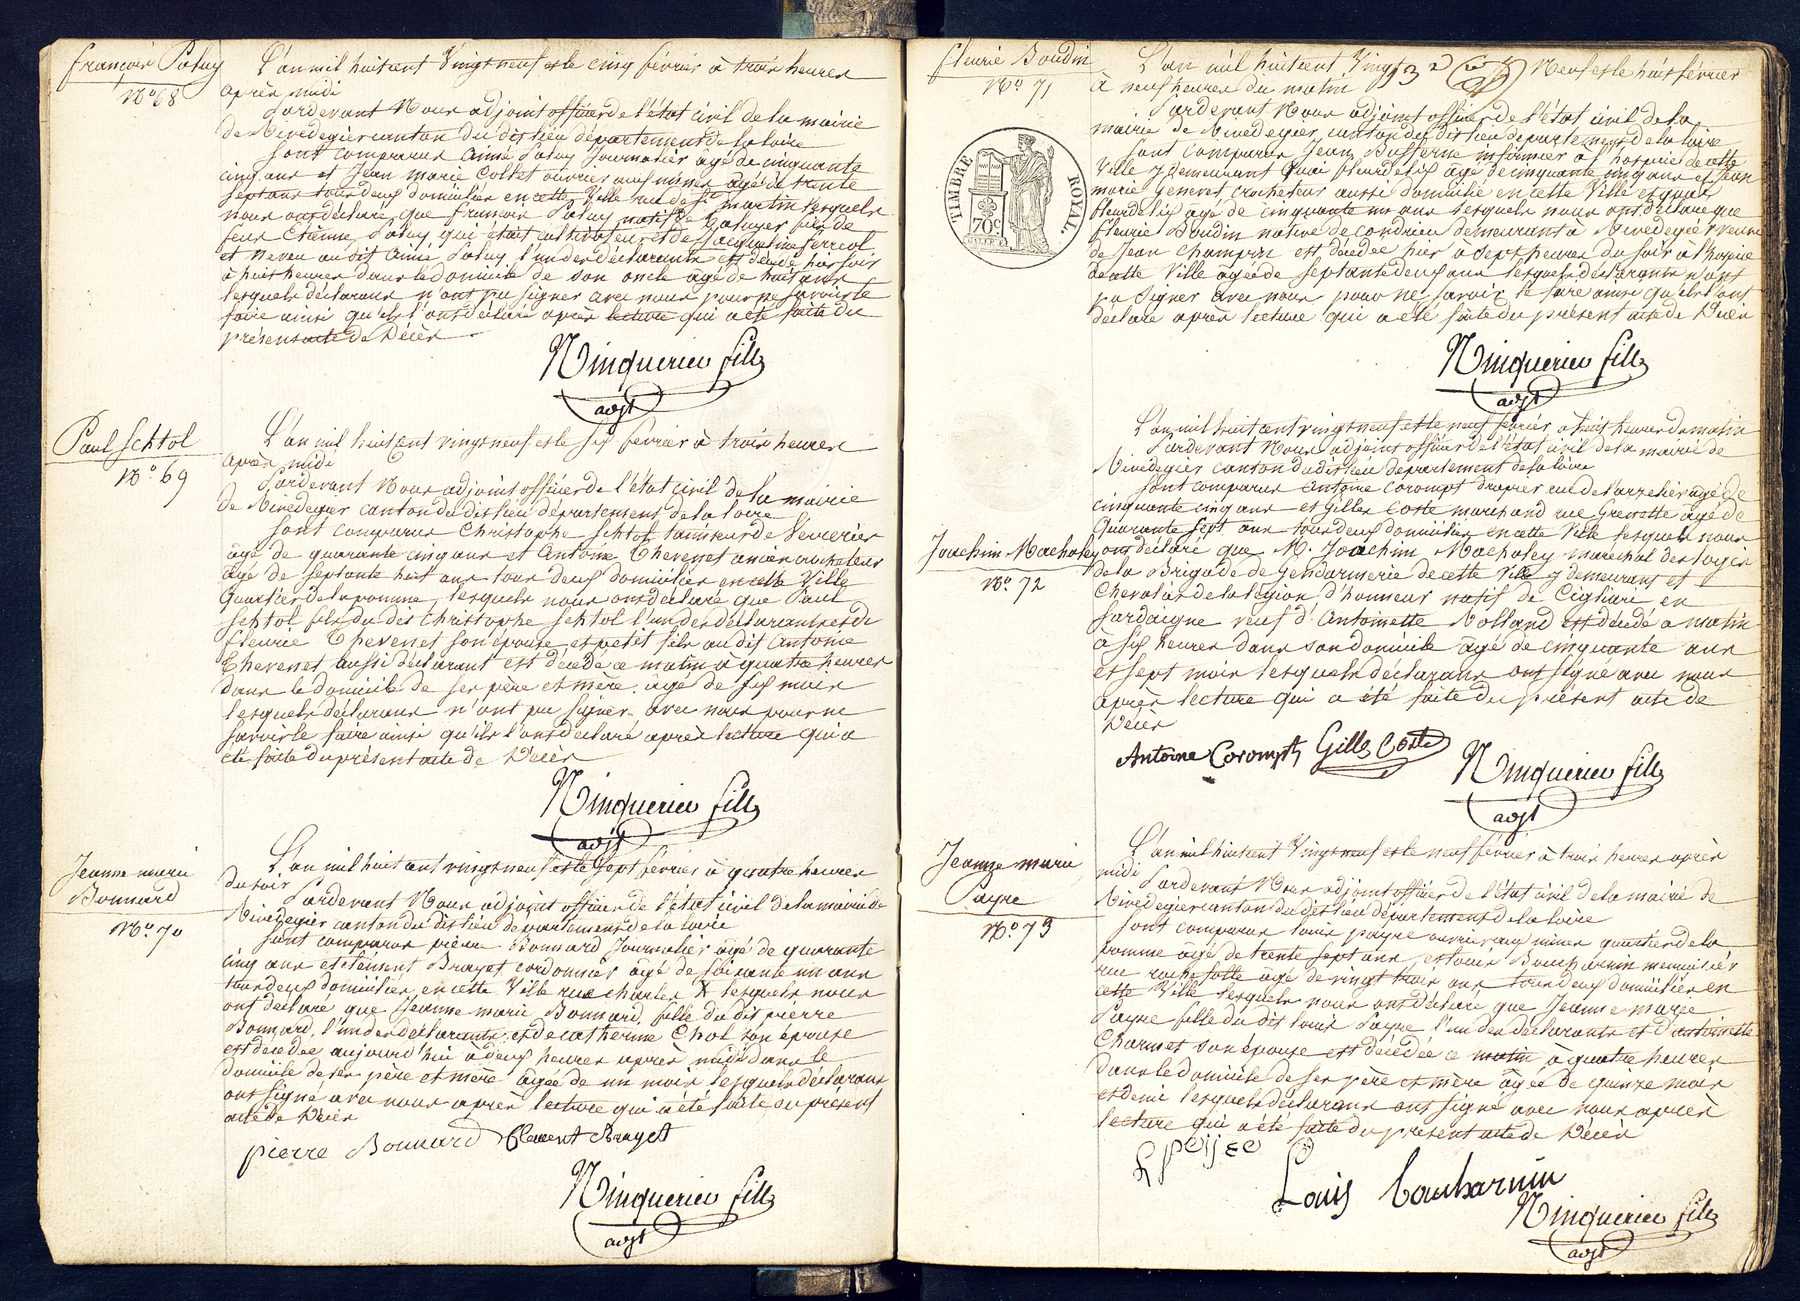 françois Paluy
No. 68
L'an mil huit cent Vingt neuf et le cinq février à trois heures
après midi
Pardevant Nous adjoint officier de l'état civil de la mairie
de Rivedegier canton du dis lieu département de la loire
sont comparus aimé Paluy Journalier âgé de cinquante
cinq ans et Jean Marie Collet ouvrier aux mines âgé de trente
sept ans tous deux domiciliés en cette Ville rue de St martin lesquels
nous ont déclaré que françois Paluy natif de fils de
feu Etienne Paluy qui était cultivateur et de Jacqueline ferriol
et neveu au dit aimé Paluy l'un des déclarants est décédé hier soir
à huit heures dans le domicile de son oncle âgé de huit ans
lesquels déclarans n'ont pu signer avec nous pour ne savoir le
faire ainsi qu'ils l'ont déclaré après lecture qui a été faite du
présent acte de Décès
fils
adjt
Paul Schtol
No. 69
L'an mil huit cent vingt neuf et le six février à trois heures
après midi
Pardevant Nous adjoint officier de l'état civil de la mairie
de Rivedegier canton du dis lieu département de la loire
sont comparus Christophe Schtol tamiseur de Verrerie
âgé de quarante cinq ans et Antoine Thevenet ancien crocheteur
âgé de septante huit ans tous deux domiciliés en cette Ville
quartier de la pomme, lesquels nous ont déclaré que Paul
Schtol fils du dit Christophe Schtol l'un des déclarants et de
fleurie Thevenet son épouse et petit fils au dit antoine
Thevenet aussi déclarant est décédé ce matin à quatre heures
dans le domicile de ses père et mère. âgé de six mois
lesquels déclarans n'ont pu signer avec nous pour ne
savoir le faire ainsi qu'ils l'ont déclaré après lecture qui a
été faite du présent acte de Décès
fils
adjt
Jeanne marie
Bonnard
No. 70
L'an mil huit cent vingt neuf et le sept février à quatre heures
du soir
Pardevant Nous adjoint officier de l'état civil de la mairie de
Rivedegier canton du dis lieu département de la loire
sont comparus pierre Bonnard Journalier âgé de quarante
cinq ans et clément Brayet cordonnier âgé de soixante un ans
tous deux domiciliés en cette Ville rue charles X lesquels nous
ont déclaré que Jeanne marie Bonnard, fille du dit pierre
Bonnard, l'un des déclarants et de catherine Chol son épouse
est décédée aujourd'hui à deux heures après midi dans le
domicile de ses père et mère âgée de un mois lesquels déclarans
ont signé avec nous après lecture qui a été faite du présent
acte de Décès
pierre Bonnard Clement Brayet
fils
adjt
fleurie Boudin
No. 71
L'an mil huit cent Vingt 13e Neuf et le huit février
à neuf heures du matin
Pardevant Nous adjoint officier de l'état civil de la
mairie de Rivedegier, canton du dis lieu département de la loire
sont comparus Jean Bufferne infirmier à l'hospice de cette
Ville y demeurant quai fleurdelys âgé de cinquante cinq ans et Jean
marie Genevet crocheteur aussi domicilié en cette Ville et quai
fleurdelys âgé de cinquante un ans lesquels nous ont déclaré que
fleurie Boudin native de condrieu demeurant à Rivedegier veuve
de Jean champin est décédée hier à sept heures du soir à l'hospice
de cette Ville âgée de septante deux ans lesquels déclarants n'ont
pu signer avec nous pour ne savoir le faire ainsi qu'ils l'ont
déclaré après lecture qui a été faite du présent acte de Décès
TIMBRE ROYAL.
70c
fils
adjt
Joachim Macholey
No. 72
L'an mil huit cent vingt neuf et le neuf février à huit heures du matin
Pardevant Nous adjoint officier de l'état civil de la mairie de
Rivedegier canton du dis lieu département de la loire
sont comparus Antoine Corompt drapier rue de âgé de
cinquante cinq ans et Gilles Coste marchand rue Grenette âgé de
quarante sept ans tous deux domiciliés en cette Ville lesquels nous
ont déclaré que M. Joachim Macholey maréchal des logis
de la Brigade de gendarmerie de cette Ville y demeurant et
Chevalier de la légion d'honneur natif de Cigliari en
sardaigne veuf d'Antoinette Rolland est décédé ce matin
à six heures dans son domicile âgé de cinquante ans
et sept mois lesquels déclarans ont signé avec nous
après lecture qui a été faite du présent acte de
Décès
Antoine Corompt Gilles Coste
fils
adjt
Jeanne marie
Payre
No. 73
L'an mil huit cent Vingt neuf et le neuf février à trois heures après
midi
Pardevant Nous adjoint officier de l'état civil de la mairie de
Rivedegier canton du dis lieu département de la loire
sont comparus louis payre ouvrier aux mines quartier de la
pomme âgé de trente sept ans, et louis Boucharnin menuisier
rue roche âgé de vingt trois ans tous deux domiciliés en
cette Ville lesquels nous ont déclaré que Jeanne marie
Payre fille du dit louis Payre l'un des déclarants et d'antoinette
Charmet son épouse est décédée ce matin à quatre heures
dans le domicile de ses père et mère âgée de quinze mois
et demi lesquels déclarans ont signé avec nous après
lecture qui a été faite du présent acte de Décès
Louis Boucharnin
fils
adjt